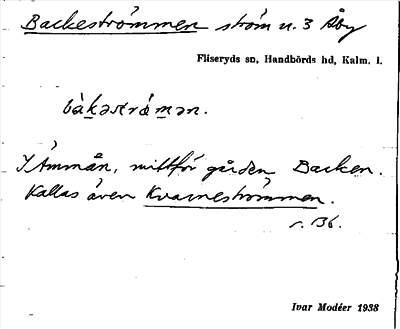 Backeströmmen ström n. 3 Åby
Fliseryds sn, Handbörds hd, Kalm. l.
bàkəströ́mən.
I Ämmån, mittför gården Backen.
Kallas även Kvarneströmmen.
s. 136.
Ivar Modéer 1938